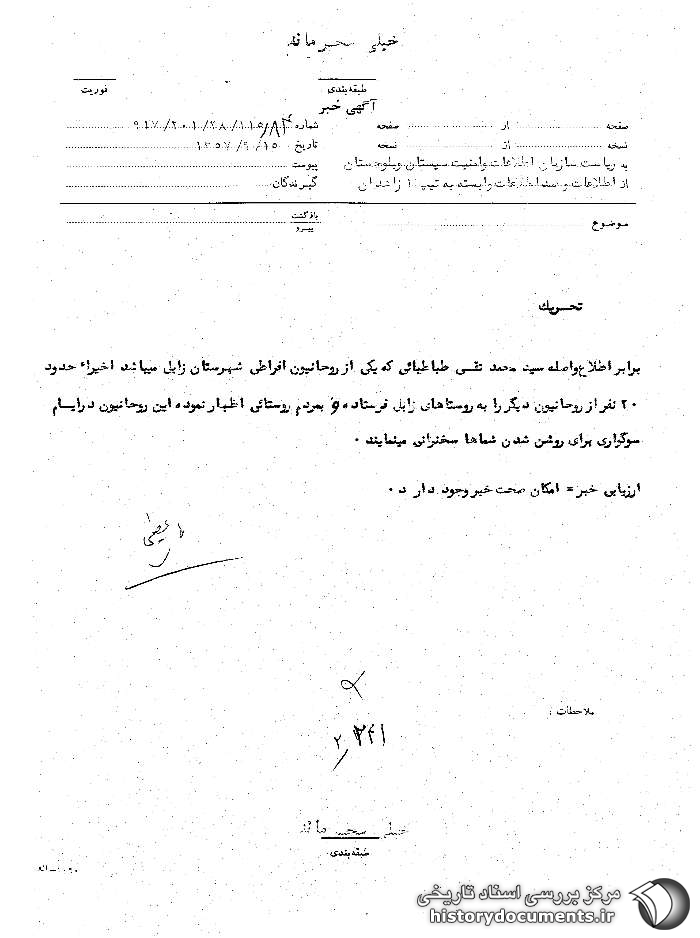 خیلی محرمانه
طبقه‌بندی
فوریت
آگهی خبر
صفحه از صفحه شماره
نسخه از نسخه تاریخ ۱۳۵۷/۹/۱۵
به ریاست سازمان اطلاعات وامنیت سیستان وبلوچستان پیوست
از اطلاعات و ضد اطلاعات وابسته به تیپ زاهدان گیرندگان
موضوع بازگشت
پیرو
تحریک
برابر اطلاع واصله سید محمد تقی طباطبائی که یکی از روحانیون افراطی شهرستان زابل میباشد اخیراً حدود
۲۰ نفر از روحانیون دیگر را به روستاهای زابل فرستاده و بمردم روستائی اظهار نموده این روحانیون در ایام
سوگواری برای روشن شدن شماها سخنرانی مینمایند ۰
ارزیابی خبر = امکان صحت خبر وجود دارد ۰
ملاحظات :
خیلی محرمانه
طبقه‌بندی
مرکز بررسی اسناد تاریخی
historydocuments.ir